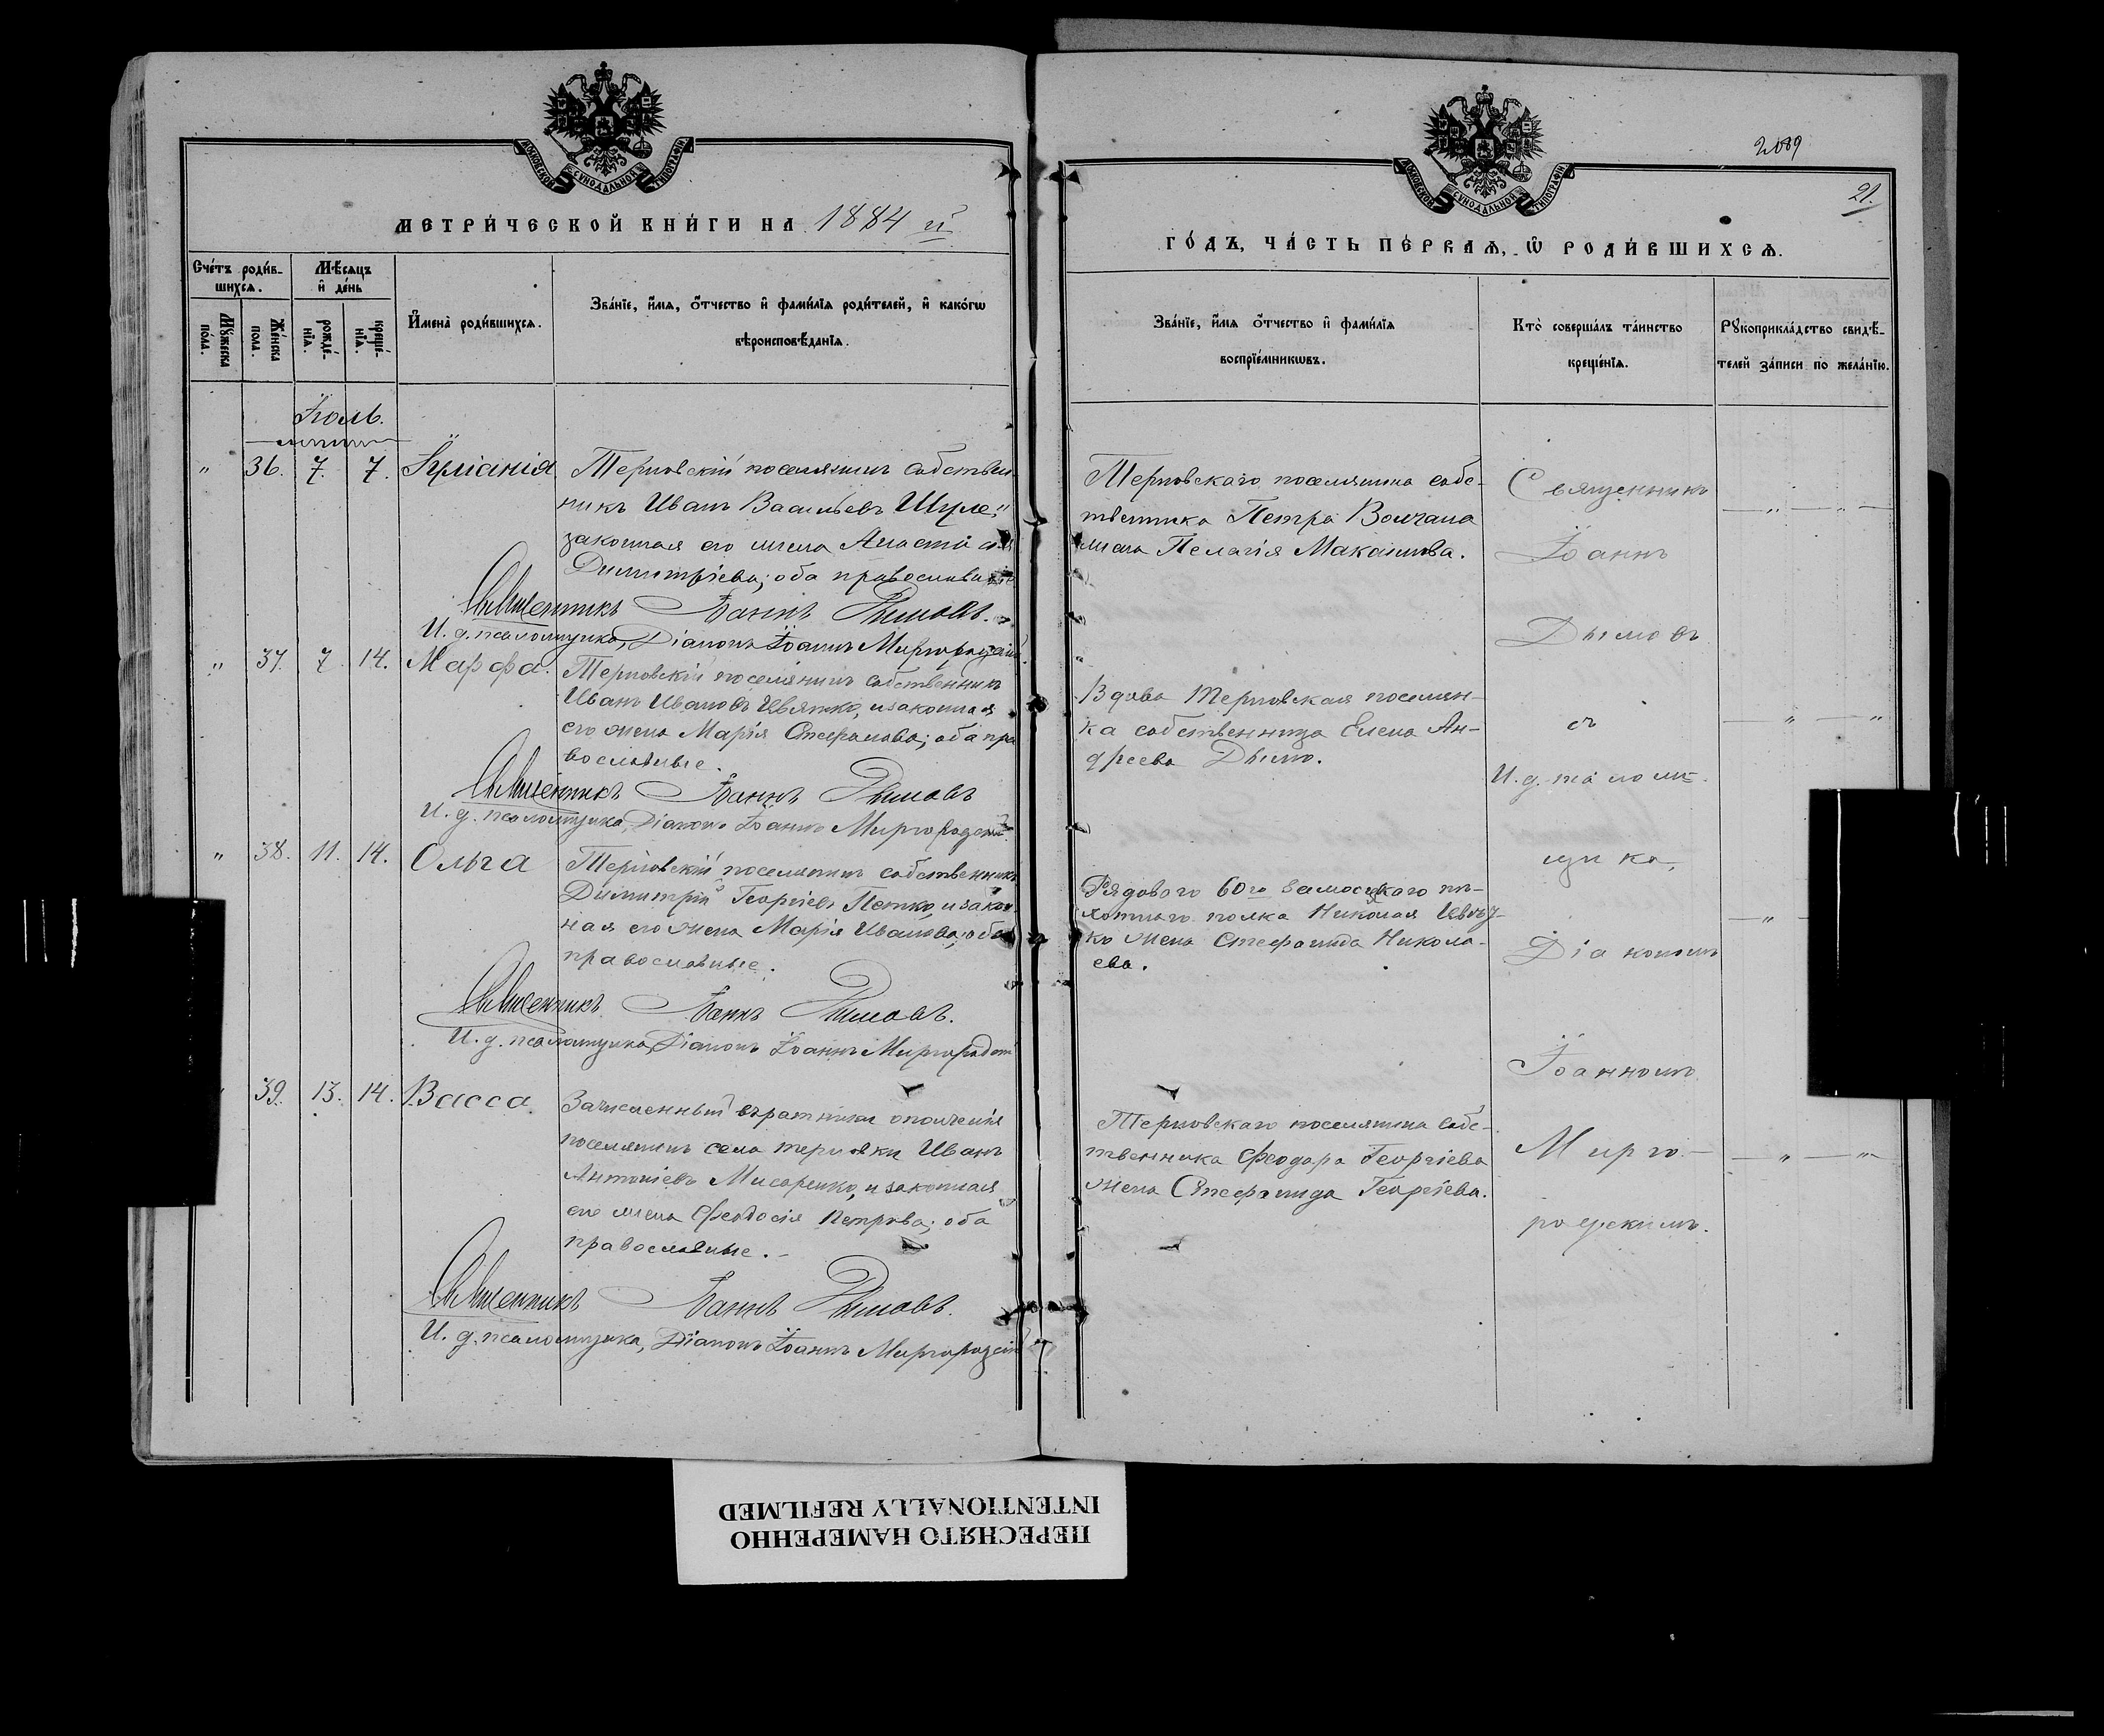 МОСКОВСКОЙ СѴНОДАЛЬНОЙ ТИПОГРАФІИ
МЕТРИ́ЧЕСКОЙ КНИ́ГИ НА 1884 й
Сче́тъ роди́в-
шихсѧ.
Мѣ́сѧцъ
и҆ де́нь
Мꙋ́жеска
по́ла.
Же́нска
по́ла.
рожде́-
нїѧ.
креще́-
нїѧ.
И҆мена̀ роди́вшихсѧ.
Зва́нїе, и҆́мѧ, ѻ҆́тчество и҆ фами́лїѧ роди́телей, и҆ како́гѡ
вѣроисповѣ́данїѧ.
Іюль.
" 36. 7. 7. Іуліанія Терновскій поселянинъ собствен-
никъ Иванъ Васильевъ Шуле,
законная его жена Анастасія
Димитріева; оба православные
Священникъ Іоаннъ Дымовъ.
И. д. псаломщика, Діаконъ Іоаннъ Миргородскій
" 37. 7. 14. Марфа. Терновскій поселянинъ собственникъ
Иванъ Ивановъ Ивянко, и законная
его жена Марія Стефанова; оба пра
вославные.
Священникъ Іоаннъ Дымовъ
И. д. псаломщика, Діаконъ Іоаннъ Миргородскій
" 38. 11. 14. Ольга Терновскій поселянинъ собственникъ
Димитрій Георгіевъ Петко, и закон
ная его жена Марія Иванова; оба
православные.
Священникъ Іоаннъ Дымовъ.
И. д. псаломщика, Діаконъ Іоаннъ Миргородскій
39. 13. 14. Васса. Зачисленный въ ратники ополченія
поселянинъ села терновки Иванъ
Антоніевъ Писаренко, и законная
его жена Феодосія Петрова; оба
православные.
Священникъ Іоаннъ Дымовъ.
И. д. псаломщика, Діаконъ Іоаннъ Миргородскій
МОСКОВСКОЙ СѴНОДАЛЬНОЙ ТИПОГРАФІИ
2089
21.
ГО́ДЪ, ЧА́СТЬ ПЕ́РВАѦ, Ѡ҆ РОДИ́ВШИХСѦ.
Зва́нїе, и҆́мѧ ѻ҆́тчество и҆ фами́лїѧ
воспрїе́мникѡвъ.
Кто̀ соверша́лъ та́инство
креще́нїѧ.
Рꙋкоприкла́дство свидѣ́-
телей за́писи по жела́нїю.
Терновскаго поселянина собс-
твенника Петра Волчана
жена Пелагія Максимова.
Вдова Терновская поселян-
ка собственница Елена Ан-
дреева Дымо.
Рядового 60го Замосцкаго пѣ-
хотнаго полка Николая
жена Стефанида Никола-
ева.
Терновскаго поселянина собс-
твенника Феодора Георгіева
жена Стефанида Георгіева.
Священникъ
Іоаннъ
Дымовъ
съ
И. д. псалом-
щика,
Діакономъ
Іоанномъ
Мирго-
родскимъ.
ПЕРЕСНЯТО НАМЕРЕННО
INTENTIONALLY REFILMED